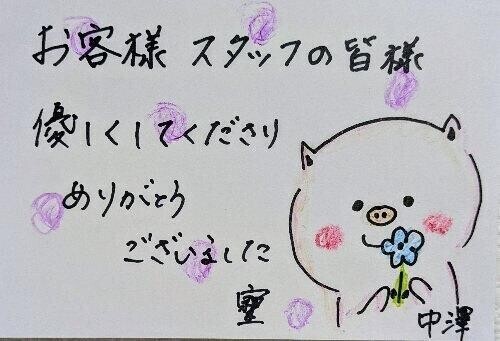 お客様 スタッフの皆様
優しくしてくださり
ありがとう
ございました
中澤